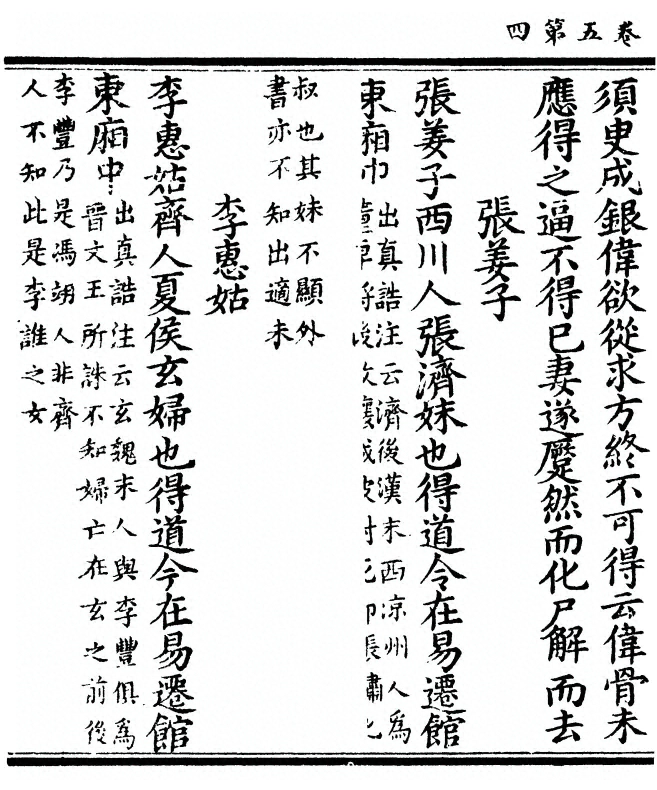 卷五第四
須史成銀偉欲從求方終不可得云偉骨未
應得之逼不得巳妻遂蹷然而化尸解而去
張姜子
張姜子西川人張濟妹也得道令在易遷館
東廂巾
出真誥注云濟後漢末西凉州人為
董卓將後攻穰城被射即張繡
叔也其妹不顯外
書亦不知出適未
李惠姑
李惠姑齊人夏侯玄婦也得道今在易遷館
東廂中
出真誥注云玄魏末人與李豐俱為
晉文王所誅不知婦亡在玄之前後
李豐乃是馮翊人非齊
人不知此是李誰之女